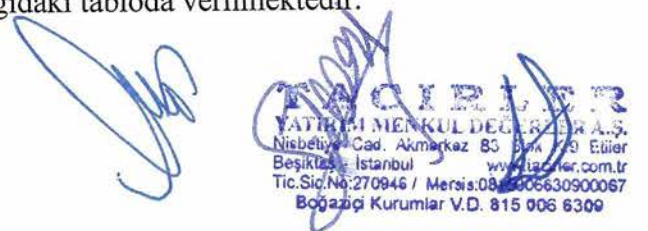 ğıdaki tabloda verilmektedir.
TACİRLER
YATIRIM MENKUL DEĞERLER A.Ş.
Nisbetiye Cad. Akmerkez B3 Etiler
Beşiktaş - İstanbul
Tic.Sic.No:270946 / Mersis:
Boğaziçi Kurumlar V.D. 815 006 6309